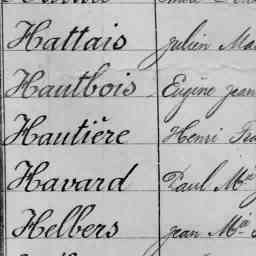 Hattais Julien
Hautbois Eugène Jean
Hautière Henri
Havard Paul Mie
Helbers Jean Mie